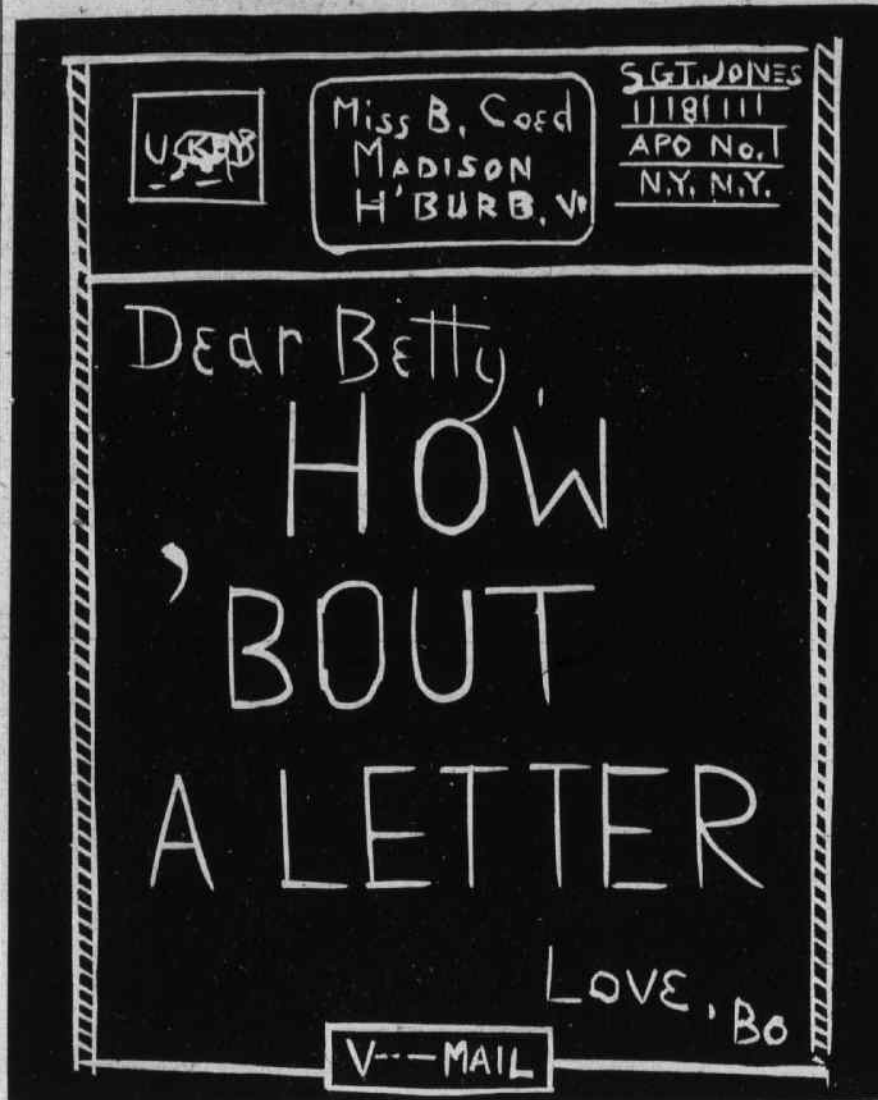 Miss B. Coed
MADISON
H'BURB, Va
SGT. JONES
11181111
APO No. 1
N.Y. N.Y.
Dear Betty,
HOW
'BOUT
A LETTER
LOVE, BO
V---MAIL